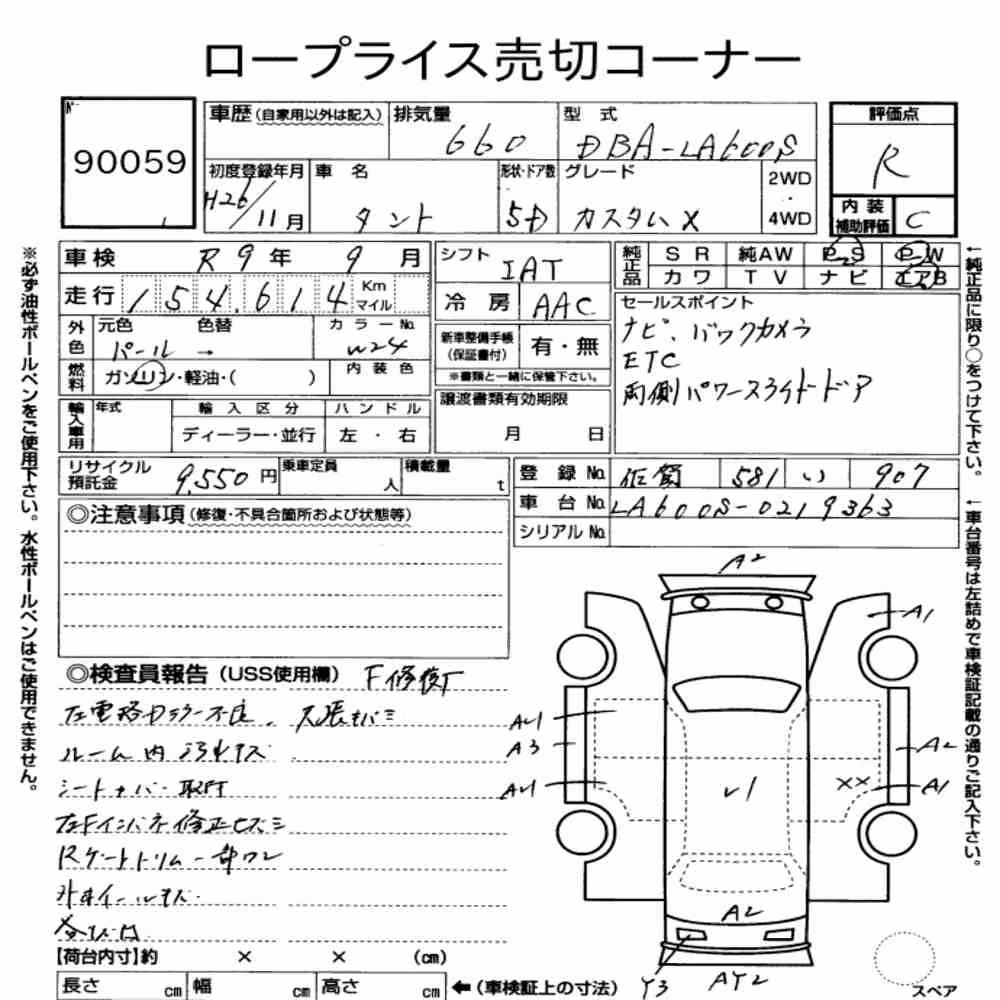 ロープライス売切コーナー
№
90059
車歴 (自家用以外は記入)
排気量
660
型 式
DBA-LA600S
評価点
R
初度登録年月
H26/11月
車 名
タント
形状・ドア数
5D
グレード
カスタムX
2WD
・
4WD
内 装
補助評価
C
車検
R9年 9月
シフト
IAT
純正品
SR 純AW PS PW
カワ TV ナビ エアB
走行
154,614
Km
マイル
冷 房
AAC
セールスポイント
ナビ、バックカメラ
ETC
両側パワースライドドア
外色
元色 色替
パール →
カラーNo.
W24
新車整備手帳
(保証書付)
有・無
※書類と一緒に保管下さい。
燃料
ガソリン・軽油・( )
内 装 色
譲渡書類有効期限
月 日
輸入車用
年式
輸 入 区 分
ハ ン ド ル
ディーラー・並行
左 ・ 右
リサイクル
預託金
9,550 円
乗車定員
人
積載量
t
登 録 No.
佐賀 581 い 907
車 台 No.
LA600S-0219363
シリアルNo.
◎注意事項 (修復・不具合箇所および状態等)
◎検査員報告 (USS使用欄) F修復
ルーム内汚れキズ
シートカバー取付
左Fインパネ修正ヒズミ
Rゲートトリム一部ワレ
【荷台内寸】約 × × (cm)
長さ cm 幅 cm 高さ cm
←(車検証上の寸法)
A2
A1
AU1
A3
AU1
A2
××
A1
A2
Y3
AY2
スペア
※必ず油性ボールペンをご使用下さい。水性ボールペンはご使用できません。
←純正品に限り○をつけて下さい。
←車台番号は左詰めで車検証記載の通りご記入下さい。